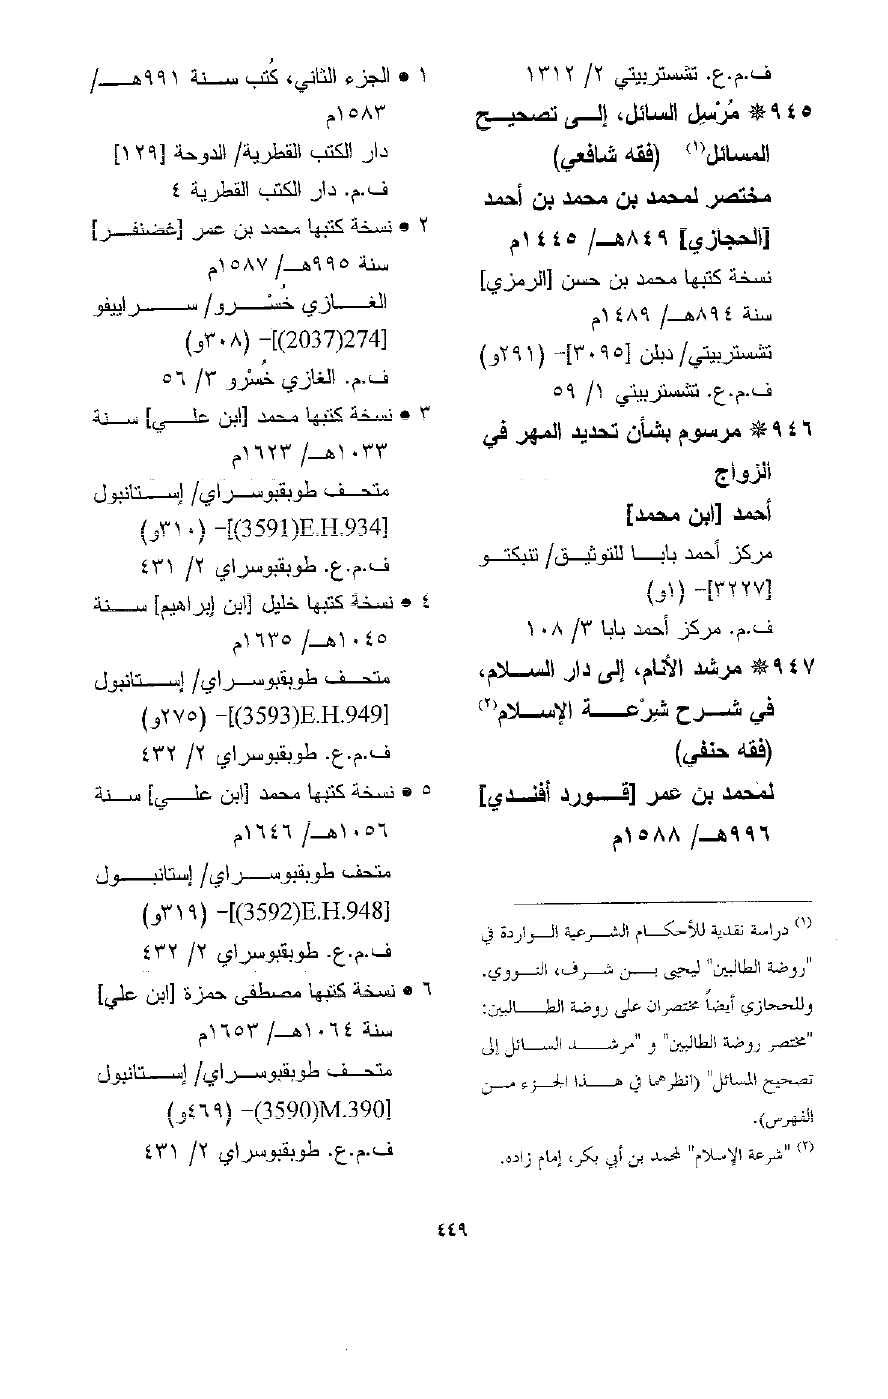 ف.م.ع. تشستربيتي ٢/ ١٣١٢
٩٤٥ * مُرْسِل السائل، إلى تصحيح
المسائل(١) (فقه شافعي)
مختصر لمحمد بن محمد بن أحمد
[الحجازي] ٨٤٩هـ/ ١٤٤٥م
نسخة كتبها محمد بن حسن [الرمزي]
سنة ٨٩٤هـ/ ١٤٨٩م
تشستربيتي/ دبلن [٣٠٩٥]– (٢٩١و)
ف.م.ع. تشستربيتي ١/ ٥٩
٩٤٦ * مرسوم بشأن تحديد المهر في
الزواج
أحمد [ابن محمد]
مركز أحمد بابا للتوثيق/ تنبكتو
[٣٢٢٧]– (١و)
ف.م. مركز أحمد بابا ٣/ ١٠٨
٩٤٧ * مرشد الأنام، إلى دار السلام،
في شرح شِرْعة الإسلام(٢)
(فقه حنفي)
لمحمد بن عمر [قورد أفندي]
٩٩٦هـ/ ١٥٨٨م
(١) دراسة نقدية للأحكام الشرعية الواردة في
"روضة الطالبين" ليحيى بن شرف، النووي.
وللحجازي أيضاً مختصران على روضة الطالبين:
"مختصر روضة الطالبين" و "مرشد السائل إلى
تصحيح المسائل" (انظرهما في هذا الجزء من
الفهرس).
(٢) "شرعة الإسلام" لمحمد بن أبي بكر، إمام زاده.
١ • الجزء الثاني، كُتب سنة ٩٩١هـ/
١٥٨٣م
دار الكتب القطرية/ الدوحة [١٢٩]
ف.م. دار الكتب القطرية ٤
٢ • نسخة كتبها محمد بن عمر [غضنفر]
سنة ٩٩٥هـ/ ١٥٨٧م
الغازي خُسْرو/ سراييفو
[274(2037)]– (٣٠٨و)
ف.م. الغازي خُسْرو ٣/ ٥٦
٣ • نسخة كتبها محمد [ابن علي] سنة
١٠٣٣هـ/ ١٦٢٣م
متحف طوبقبوسراي/ إستانبول
[E.H.934(3591)]– (٣١٠و)
ف.م.ع. طوبقبوسراي ٢/ ٤٣١
٤ • نسخة كتبها خليل [ابن إبراهيم] سنة
١٠٤٥هـ/ ١٦٣٥م
متحف طوبقبوسراي/ إستانبول
[E.H.949(3593)]– (٢٧٥و)
ف.م.ع. طوبقبوسراي ٢/ ٤٣٢
٥ • نسخة كتبها محمد [ابن علي] سنة
١٠٥٦هـ/ ١٦٤٦م
متحف طوبقبوسراي/ إستانبول
[E.H.948(3592)]– (٣١٩و)
ف.م.ع. طوبقبوسراي ٢/ ٤٣٢
٦ • نسخة كتبها مصطفى حمزة [ابن علي]
سنة ١٠٦٤هـ/ ١٦٥٣م
متحف طوبقبوسراي/ إستانبول
[M.390(3590)– (٤٦٩و)
ف.م.ع. طوبقبوسراي ٢/ ٤٣١
٤٤٩